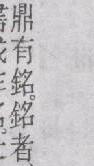 鼎有銘。銘者、